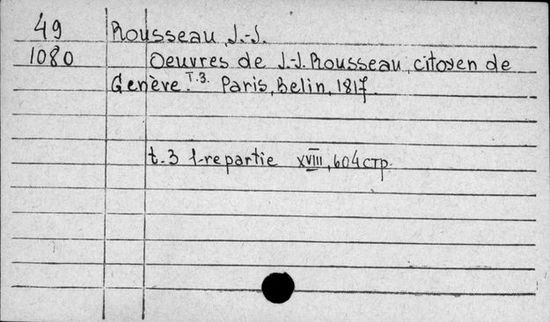 49 Rousseau, J.-J.
1080 Oeuvres de J.-J. Rousseau, citoyen de
Genève. T.3. Paris, Belin, 1817.
t. 3 1-re partie XVIII, 604 стр.